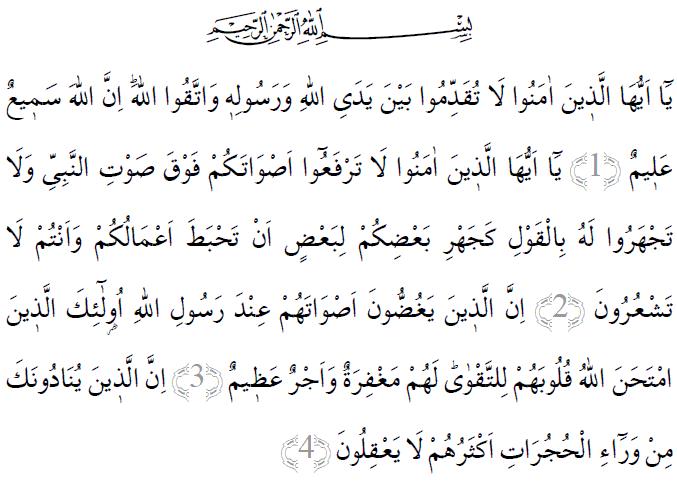 بِسْمِ اللّٰهِ الرَّحْمٰنِ الرَّحِيمِ
يَٓا اَيُّهَا الَّذ۪ينَ اٰمَنُوا لَا تُقَدِّمُوا بَيْنَ يَدَيِ اللّٰهِ وَرَسُولِه۪ وَاتَّقُوا اللّٰهَۜ اِنَّ اللّٰهَ سَم۪يعٌ
عَل۪يمٌ ﴿1﴾ يَٓا اَيُّهَا الَّذ۪ينَ اٰمَنُوا لَا تَرْفَعُٓوا اَصْوَاتَكُمْ فَوْقَ صَوْتِ النَّبِيِّ وَلَا
تَجْهَرُوا لَهُ بِالْقَوْلِ كَجَهْرِ بَعْضِكُمْ لِبَعْضٍ اَنْ تَحْبَطَ اَعْمَالُكُمْ وَاَنْتُمْ لَا
تَشْعُرُونَ ﴿2﴾ اِنَّ الَّذ۪ينَ يَغُضُّونَ اَصْوَاتَهُمْ عِنْدَ رَسُولِ اللّٰهِ اُو۬لٰٓئِكَ الَّذ۪ينَ
امْتَحَنَ اللّٰهُ قُلُوبَهُمْ لِلتَّقْوٰىۜ لَهُمْ مَغْفِرَةٌ وَاَجْرٌ عَظ۪يمٌ ﴿3﴾ اِنَّ الَّذ۪ينَ يُنَادُونَكَ
مِنْ وَرَٓاءِ الْحُجُرَاتِ اَكْثَرُهُمْ لَا يَعْقِلُونَ ﴿4﴾